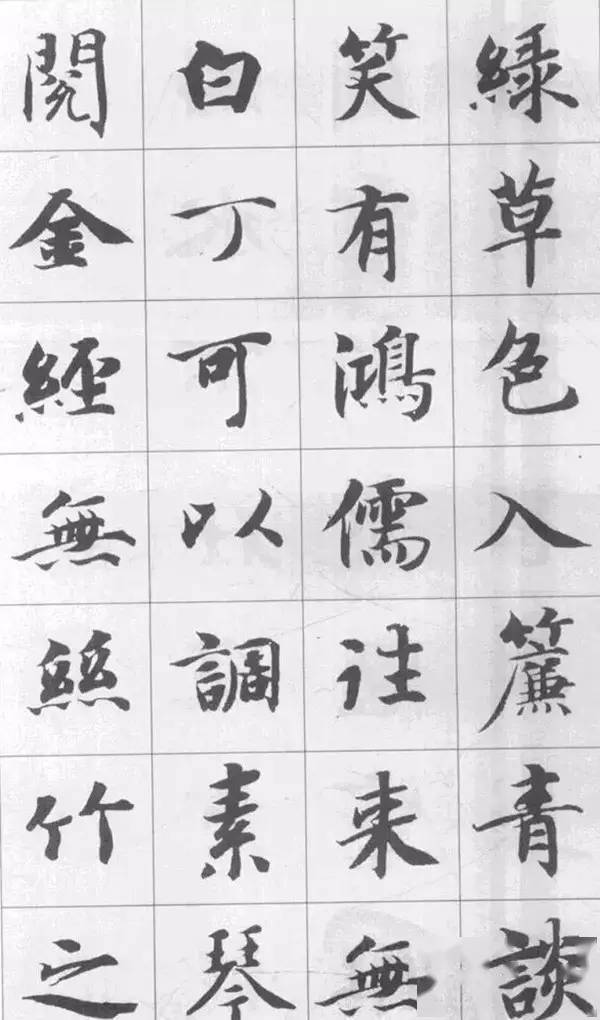 綠草色入簾青談
笑有鴻儒往來無
白丁可以調素琴
閱金經無絲竹之